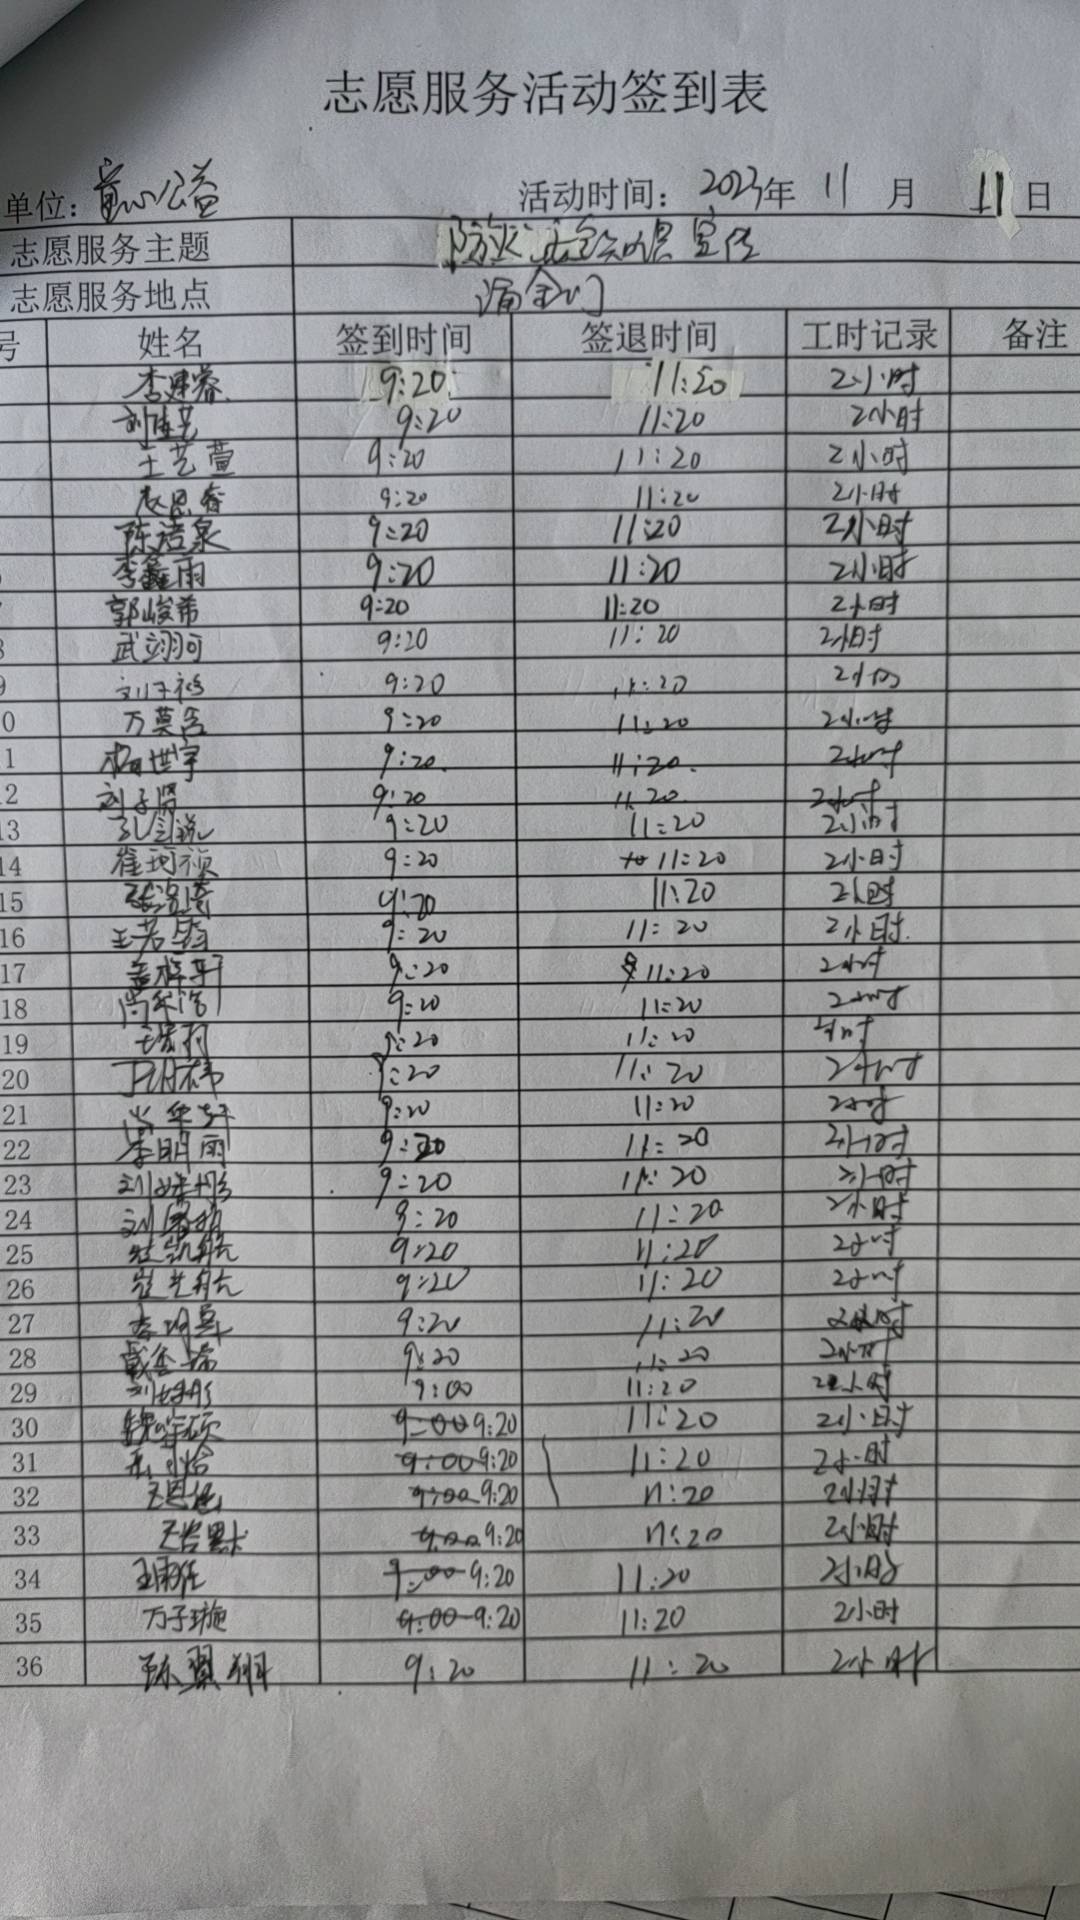 志愿服务活动签到表
单位：童心公益 活动时间：2023年 11 月 11 日
志愿服务主题 防火安全知识宣传
志愿服务地点 涌金门
号 姓名 签到时间 签退时间 工时记录 备注
李建睿 9:20 11:20 2小时
刘佳艺 9:20 11:20 2小时
王艺萱 9:20 11:20 2小时
9:20 11:20 2小时
陈浩泉 9:20 11:20 2小时
李鑫雨 9:20 11:20 2小时
郭峻希 9:20 11:20 2小时
8 武翊珂 9:20 11:20 2小时
9 9:20 11:20 2小时
0 万莫含 9:20 11:20 2小时
1 杨世宇 9:20 11:20 2小时
2 刘子贤 9:20 11:20 2小时
13 孔令锐 9:20 11:20 2小时
14 崔珂祯 9:20 11:20 2小时
15 9:20 11:20 2小时
16 王若 9:20 11:20 2小时
17 9:20 11:20 2小时
18 9:20 11:20 2小时
19 9:20 11:20 2小时
20 9:20 11:20 2小时
21 9:20 11:20 2小时
22 李明雨 9:20 11:20 2小时
23 9:20 11:20 2小时
24 9:20 11:20 2小时
25 9:20 11:20 2小时
26 9:20 11:20 2小时
27 9:20 11:20 2小时
28 9:20 11:20 2小时
29 9:00 11:20 2小时
30 9:00 9:20 11:20 2小时
31 9:00 9:20 11:20 2小时
32 9:00 9:20 11:20 2小时
33 9:00 9:20 11:20 2小时
34 9:00 9:20 11:20 2小时
35 万子璇 9:00 9:20 11:20 2小时
36 9:20 11:20 2小时